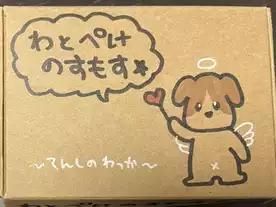 わとぺけ
のすもす☆
～てんしのわっか～